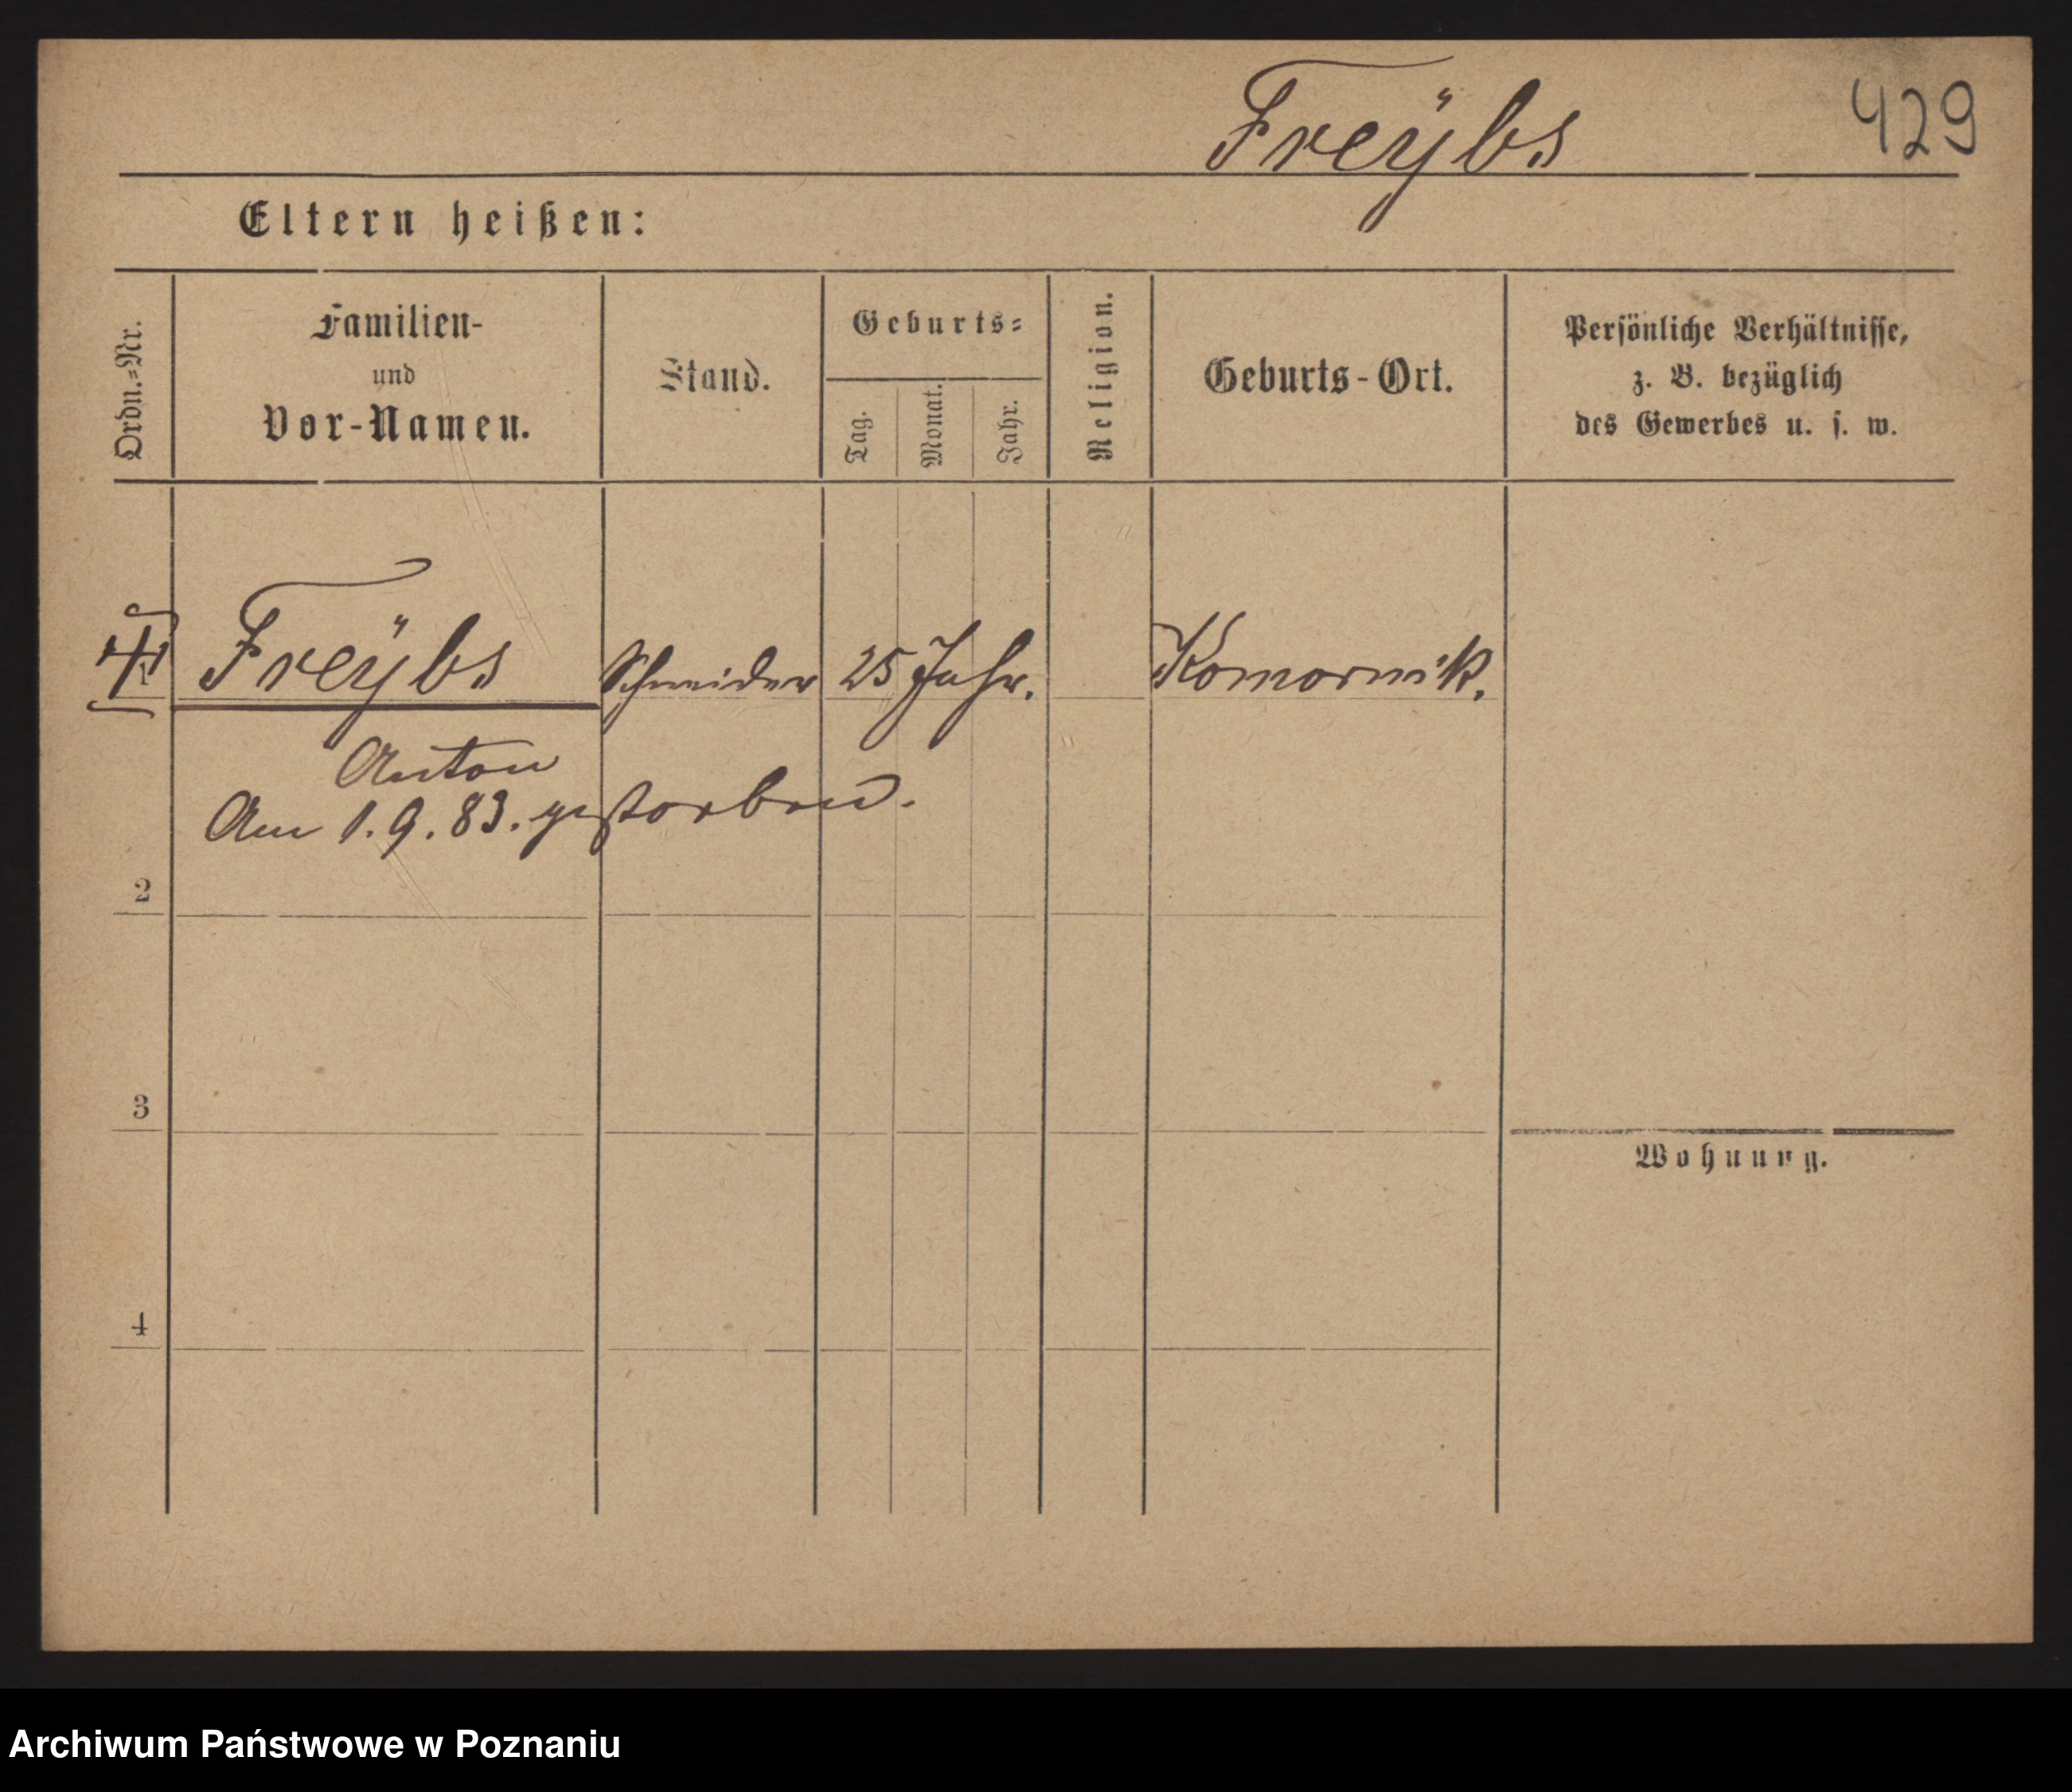 Freÿbs 429
Eltern heißen:
Ordn.=Nr.
Familien-
und
Vor-Namen.
Stand.
Geburts=
Tag.
Monat.
Jahr.
Religion.
Geburts-Ort.
Persönliche Verhältnisse,
z. B. bezüglich
des Gewerbes u. s. w.
1 Freÿbs Schneider 25 Jahr. Komornik.
Anton
Am 1.9.83. gestorben.
2
3
Wohnung.
4
Archiwum Państwowe w Poznaniu